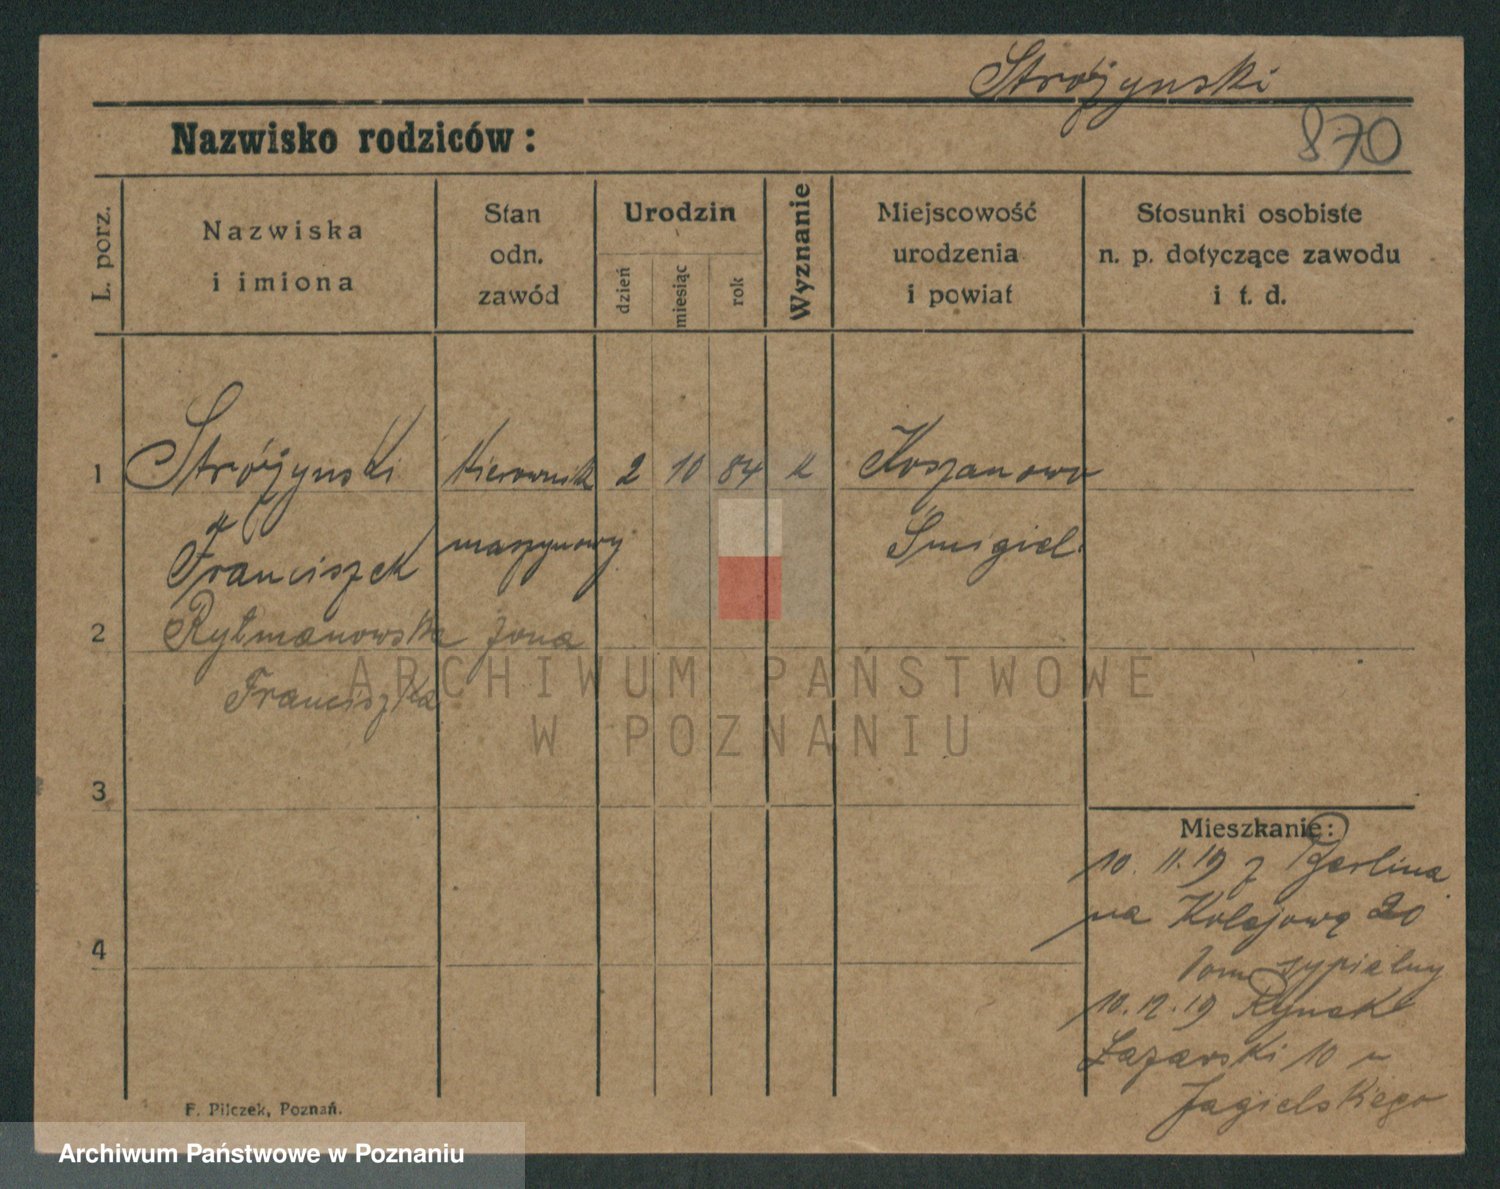 Strójynski
Nazwisko rodziców:
870
L. porz.
Nazwiska
i imiona
Stan
odn.
zawód
Urodzin
dzień
miesiąc
rok
Wyznanie
Miejscowość
urodzenia
i powiat
Stosunki osobiste
n. p. dotyczące zawodu
i t. d.
1 Strójynski kierownik 2 10 84 k Koszanowo
Franciszek maszynowy Śmigiel
2 Rytmanowska żona
Franciszka
ARCHIWUM PAŃSTWOWE
W POZNANIU
3
4
Mieszkanie:
10. 11. 19 z Berlina
na Kolejową 20
dom sypialny
10. 12. 19 Rynek
Łazarski 10 u
Jagielskiego
F. Pilczek, Poznań.
Archiwum Państwowe w Poznaniu